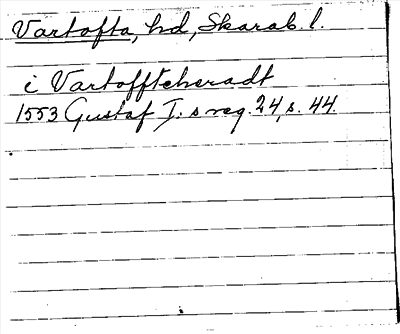 Vartofta, hd, Skarab. l.
i Vartofftcheradt
1553 Gustaf I:s reg. 24, s. 44.